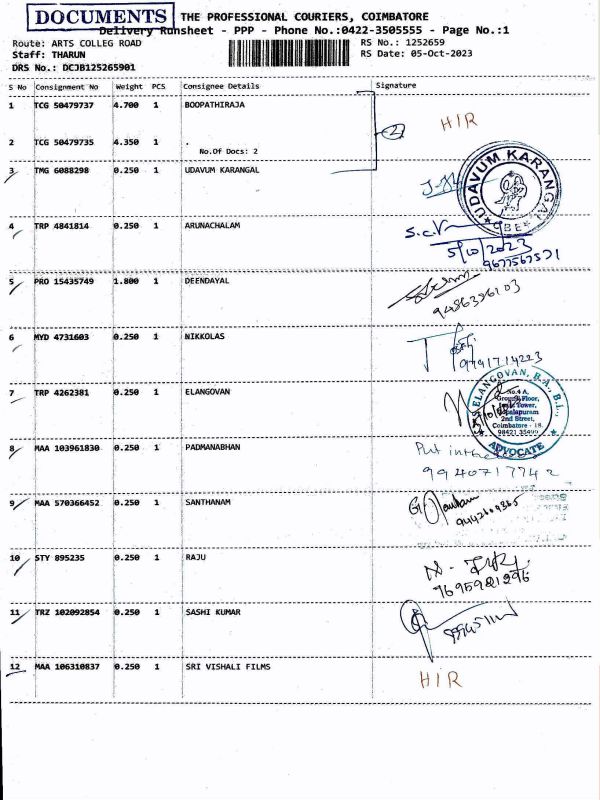 DOCUMENTS
THE PROFESSIONAL COURIERS, COIMBATORE
Delivery Runsheet - PPP - Phone No.:0422-3505555 - Page No.:1
Route: ARTS COLLEG ROAD
RS No.: 1252659
Staff: THARUN
RS Date: 05-Oct-2023
DRS No.: DCJB125265901
S No Consignment No Weight PCS Consignee Details Signature
1 TCG 50479737 4.700 1 BOOPATHIRAJA
HIR
2
2 TCG 50479735 4.350 1 .
No.Of Docs: 2
3 TMG 6088298 0.250 1 UDAVUM KARANGAL
UDAVUM KARANGAL
CBE
4 TRP 4841814 0.250 1 ARUNACHALAM
5/10/2023
9677567571
5 PRO 15435749 1.800 1 DEENDAYAL
9486396103
6 MYD 4731603 0.250 1 NIKKOLAS
9791714223
7 TRP 4262381 0.250 1 ELANGOVAN
ELANGOVAN, B.A., B.L.,
No.4 A,
Ground Floor,
Tower,
2nd Street,
Coimbatore - 18.
98421 35499
ADVOCATE
8 MAA 103961830 0.250 1 PADMANABHAN
Put in
9940717742
9 MAA 570366452 0.250 1 SANTHANAM
9442604365
10 STY 895235 0.250 1 RAJU
7695921296
11 TRZ 102092854 0.250 1 SASHI KUMAR
12 MAA 106310837 0.250 1 SRI VISHALI FILMS
HIR